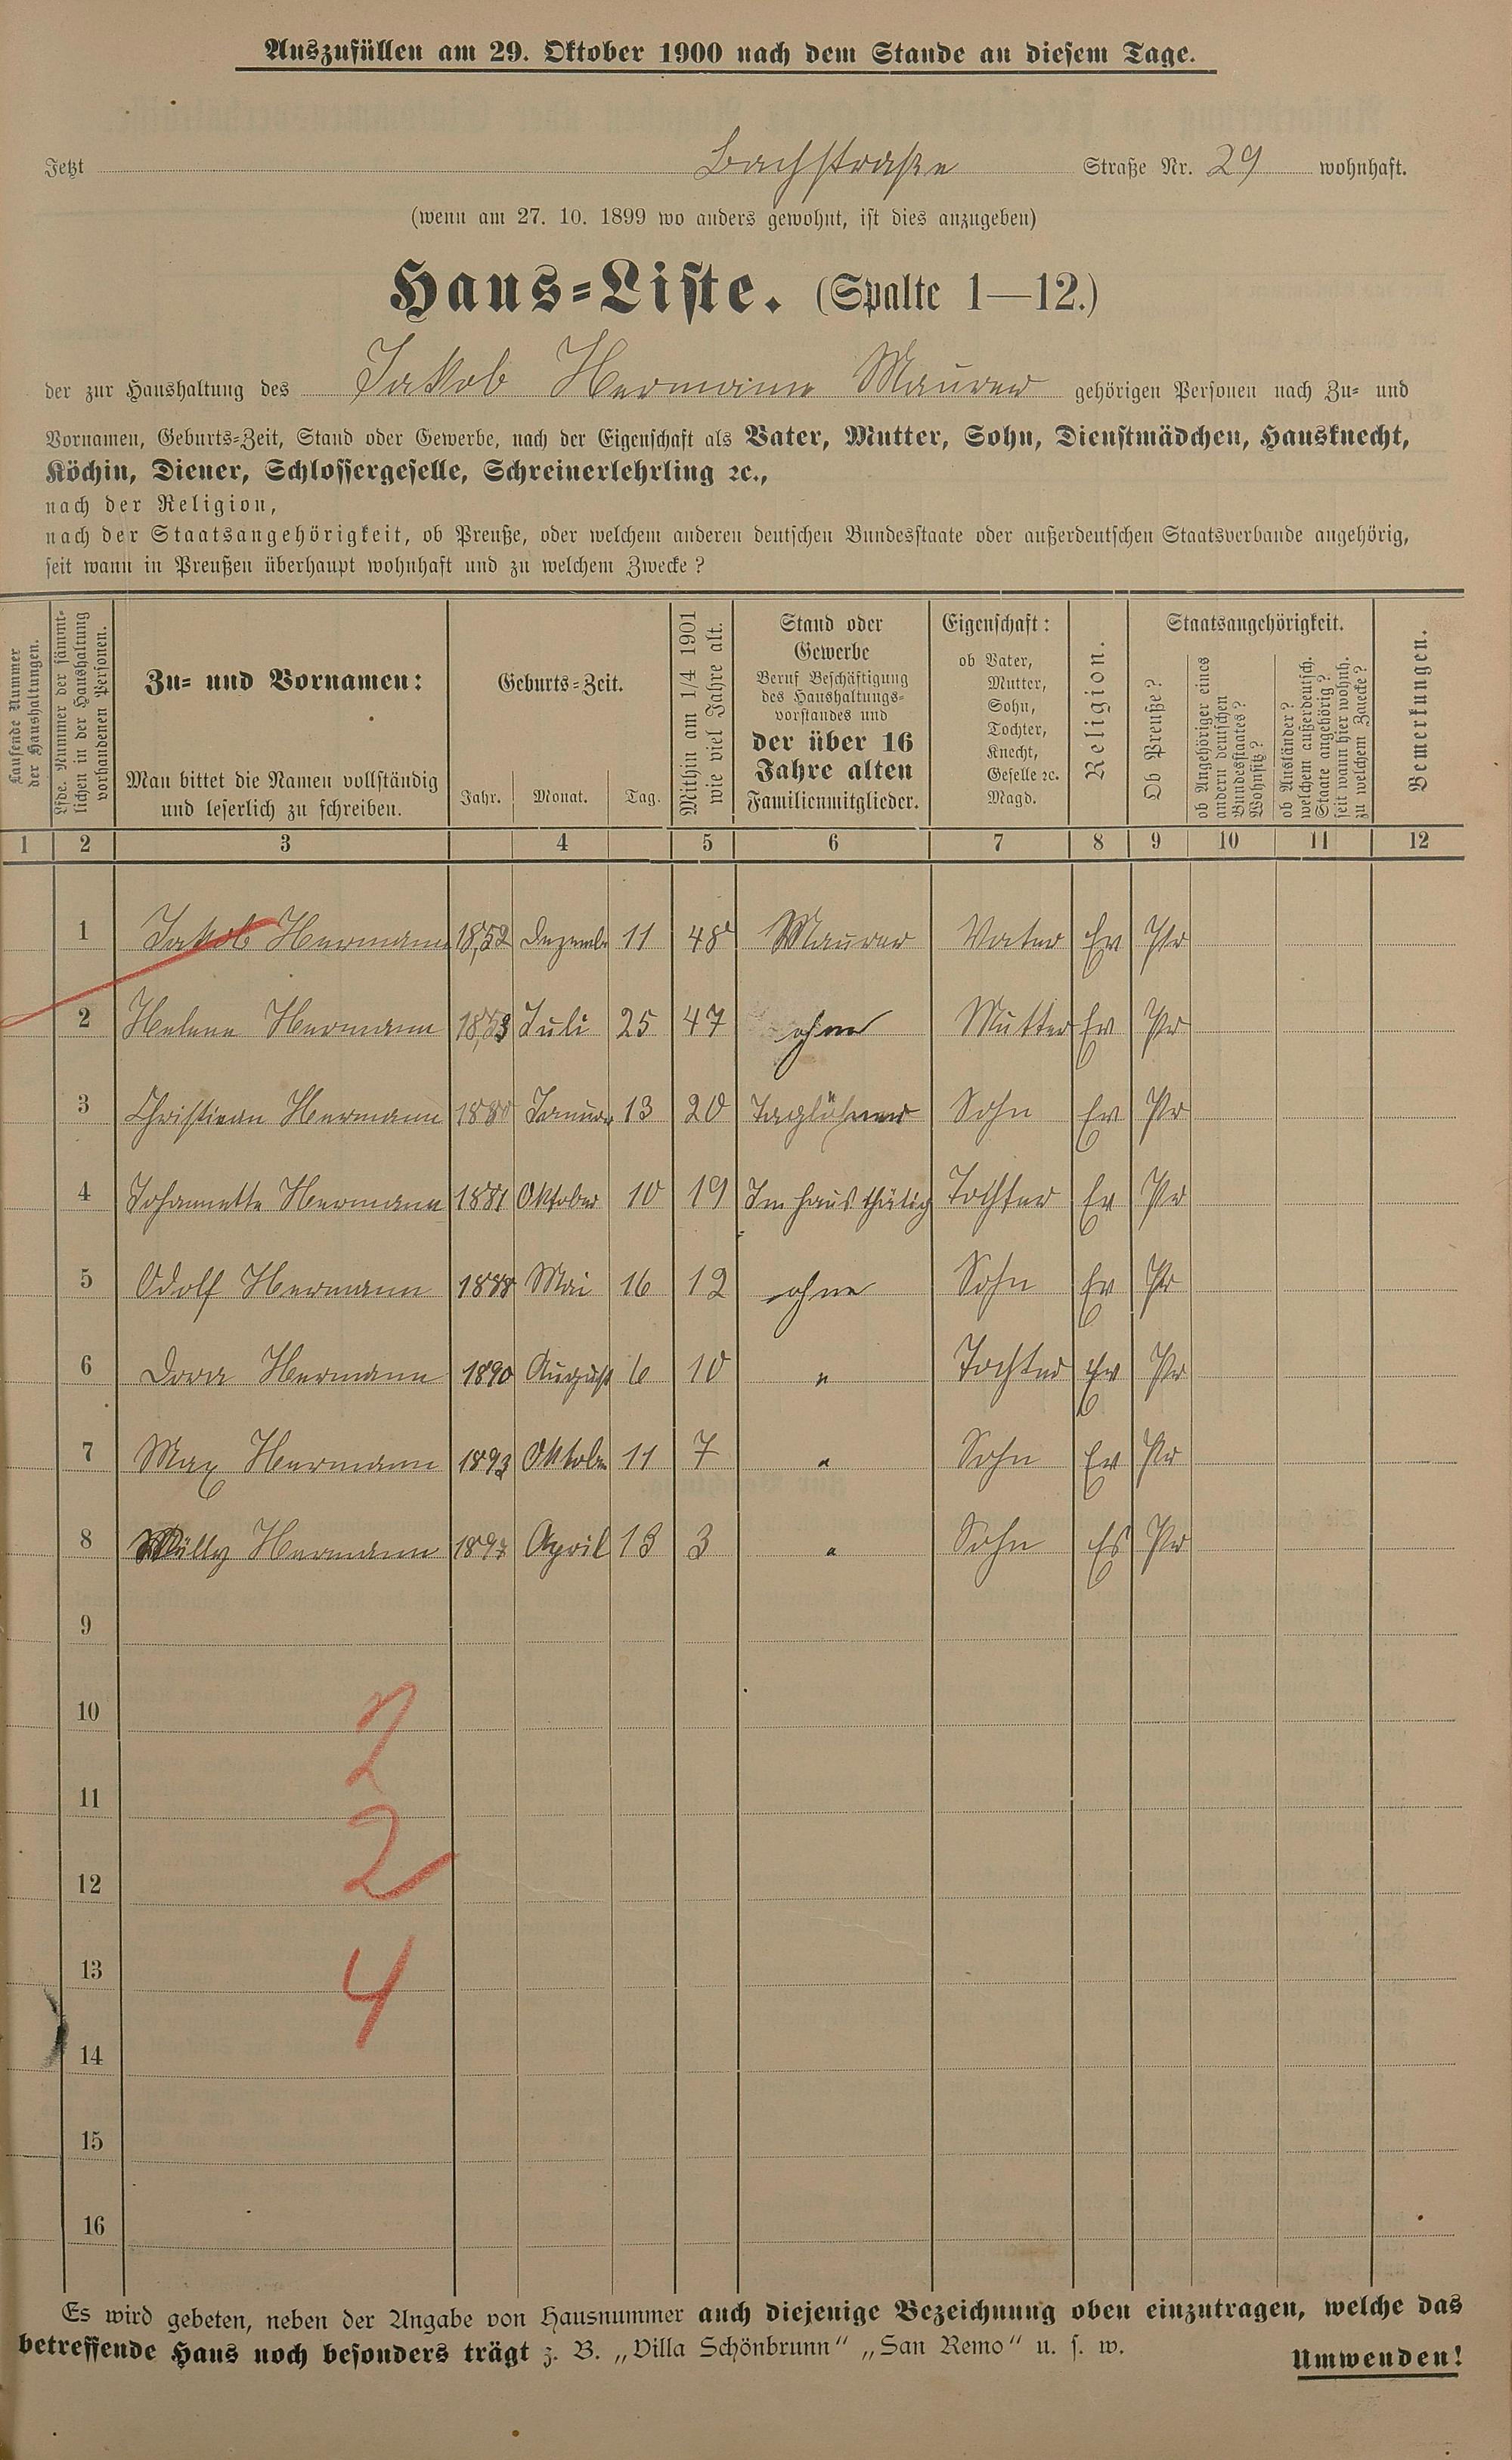 Auszufüllen am 29. Oktober 1900 nach dem Stande an diesem Tage.
Jetzt Bachstraße Straße Nr. 29 wohnhaft.
(wenn am 27. 10. 1899 wo anders gewohnt, ist dies anzugeben)
Haus-Liste. (Spalte 1—12.)
der zur Haushaltung des Jakob Hermann Maurer gehörigen Personen nach Zu- und
Vornamen, Geburts-Zeit, Stand oder Gewerbe, nach der Eigenschaft als Vater, Mutter, Sohn, Dienstmädchen, Hausknecht,
Köchin, Diener, Schlossergeselle, Schreinerlehrling ꝛc.,
nach der Religion,
nach der Staatsangehörigkeit, ob Preuße, oder welchem anderen deutschen Bundesstaate oder außerdeutschen Staatsverbande angehörig,
seit wann in Preußen überhaupt wohnhaft und zu welchem Zwecke?
Laufende Nummer
der Haushaltungen.
Lfde. Nummer der sämmt-
lichen in der Haushaltung
vorhandenen Personen.
Zu- und Vornamen:
Man bittet die Namen vollständig
und leserlich zu schreiben.
Geburts-Zeit.
Jahr. Monat. Tag.
Mithin am 1/4 1901
wie viel Jahre alt.
Stand oder
Gewerbe
Beruf Beschäftigung
des Haushaltungs-
vorstandes und
der über 16
Jahre alten
Familienmitglieder.
Eigenschaft:
ob Vater,
Mutter,
Sohn,
Tochter,
Knecht,
Geselle ꝛc.
Magd.
Religion.
Staatsangehörigkeit.
Ob Preuße?
ob Angehöriger eines
andern deutschen
Bundesstaates?
Wohnsitz?
ob Ausländer?
welchem außerdeutsch.
Staate angehörig?
seit wann hier wohnh.
zu welchem Zwecke?
Bemerkungen.
1 2 3 4 5 6 7 8 9 10 11 12
1 Jakob Hermann 1852 Dezemb 11 48 Maurer Vater Ev Pr
2 Helene Hermann 1853 Juli 25 47 ohne Mutter Ev Pr
3 Christian Hermann 1880 Januar 13 20 Taglöhner Sohn Ev Pr
4 Johannette Hermann 1881 Oktober 10 19 Im Haus thätig Tochter Ev Pr
5 Adolf Hermann 1888 Mai 16 12 ohne Sohn Ev Pr
6 Dora Hermann 1890 August 6 10 " Tochter Ev Pr
7 Max Hermann 1893 Oktober 11 7 " Sohn Ev Pr
8 Willy Hermann 1897 April 13 3 " Sohn Ev Pr
9
10
2
11
2
12
13
4
14
15
16
Es wird gebeten, neben der Angabe von Hausnummer auch diejenige Bezeichnung oben einzutragen, welche das
betreffende Haus noch besonders trägt z. B. „Villa Schönbrunn“ „San Remo“ u. s. w.
Umwenden!